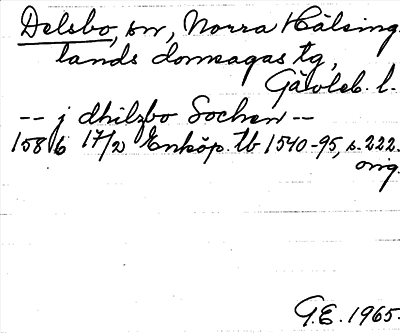 Delsbo, sn, Norra Hälsing-
lands domsagas tg,
Gävleb. l.
-- j dhilzbo Sochen --
1586 17/2 Enköp. tb 1540-95, s. 222.
orig.
G.E. 1965.